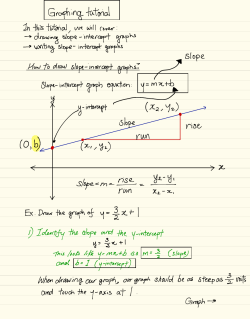 Graphing tutorial
In this tutorial, we will cover
→ drawing slope-intercept graphs
→ writing slope-intercept graphs
How to draw slope-intercept graphs?
slope
Slope-intercept graph equation: y=mx+b
y
y-intercept
(x₂, y₂)
slope
rise
(0,b)
(x₁, y₁)
run
x
slope = m = rise/run = y₂-y₁/x₂-x₁
Ex: Draw the graph of y = 3/2 x + 1
1) Identify the slope and the y-intercept
y = 3/2 x + 1
This looks like y=mx+b so m = 3/2 (slope)
and b = 1 (y-intercept)
When drawing our graph, our graph should be as steep as 3/2 units
and touch the y-axis at 1
Graph →